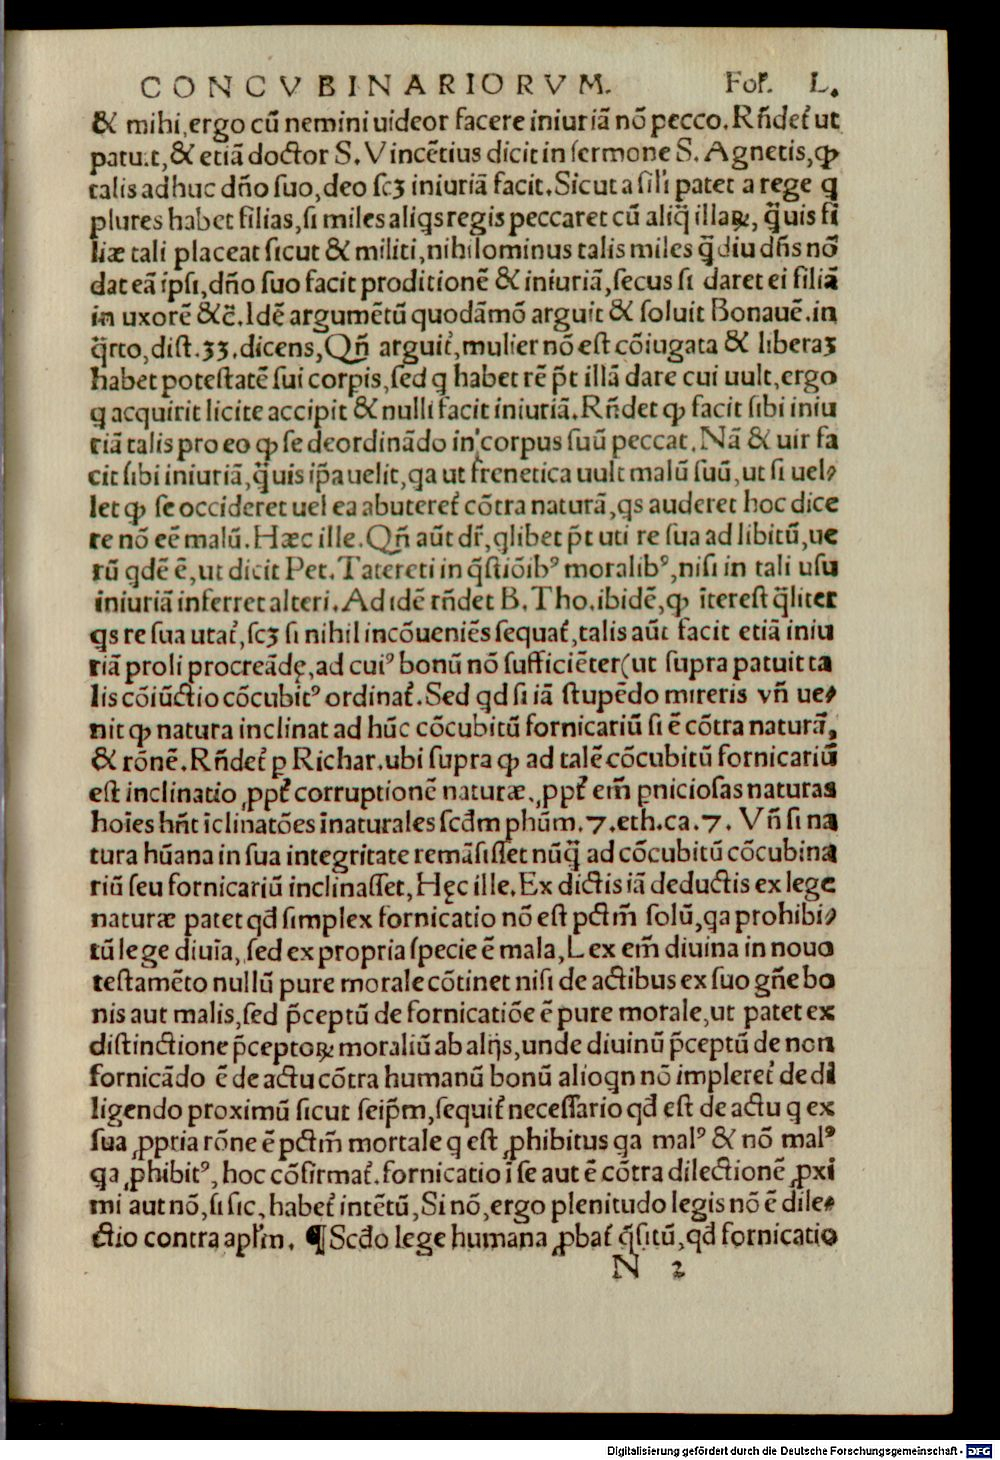 CONCVBINARIORVM. Fol. L.
& mihi, ergo cū nemini uideor facere iniuriā nō pecco. Rñdet᷑ ut
patuit, & etiā doctor S. Vincētius dicit in sermone S. Agnetis, ꝙ
talis adhuc dño suo, deo scꝫ iniuriā facit. Sicut a sili patet a rege q
plures habet filias, si miles aliqs regis peccaret cū aliq̃ illaꝝ, q̃uis fi
liæ tali placeat sicut & militi, nihilominus talis miles q̃diu dñs nō
dat eā ipsi, dño suo facit proditionē & iniuriā, secus si daret ei filiā
in uxorē &c̃. Idē argumētū quodāmō arguit & soluit Bonauē. in
q̃rto, dist. 33. dicens, Qñ arguit᷑, mulier nō est cōiugata & liberaꝫ
habet potestatē sui corpis, sed q habet rē p̃t illā dare cui uult, ergo
q acquirit licite accipit & nulli facit iniuriā. Rñdet ꝙ facit sibi iniu
riā talis pro eo ꝙ se deordinādo in corpus suū peccat. Nā & uir fa
cit sibi iniuriā, q̃uis ip̃a uelit, qa ut frenetica uult malū suū, ut si uel⸗
let ꝙ se occideret uel ea abuteret᷑ cōtra naturā, qs auderet hoc dice
re nō eē malū. Hæc ille. Qñ aūt dr̃, qlibet p̃t uti re sua ad libitū, ue
rū qdē ē, ut dicit Pet. Tatereti in q̃stiōibꝰ moralibꝰ, nisi in tali usu
iniuriā inferret alteri. Ad idē rñdet B. Tho. ibidē, ꝙ īterest q̃liter
qs re sua utat᷑, scꝫ si nihil incōueniēs sequat᷑, talis aūt facit etiā iniu
riā proli procreādę, ad cuiꝰ bonū nō sufficiēter (ut supra patuit ta
lis cōiūctio cōcubitꝰ ordinat᷑. Sed qd si iā stupēdo mireris vñ ue⸗
nit ꝙ natura inclinat ad hūc cōcubitū fornicariū si ē cōtra naturā,
& rōnē. Rñdet᷑ ꝑ Richar. ubi supra ꝙ ad talē cōcubitū fornicariū
est inclinatio ꝓpt᷑ corruptionē naturæ. ꝓpt᷑ em̃ ꝑniciosas naturas
hoīes hñt īclinatōes īnaturales scd̃m phūm. 7. eth. ca. 7. Vñ si na
tura hūana in sua integritate remāsisset nūq̃ ad cōcubitū cōcubina
riū seu fornicariū inclinasset, Hęc ille. Ex dictis iā deductis ex lege
naturæ patet qd simplex fornicatio nō est pctm̃ solū, qa prohibi⸗
tū lege diuīa, sed ex propria specie ē mala, Lex em̃ diuina in nouo
testamēto nullū pure morale cōtinet nisi de actibus ex suo gñe bo
nis aut malis, sed p̃ceptū de fornicatiōe ē pure morale, ut patet ex
distinctione p̃ceptoꝝ moraliū ab alijs, unde diuinū p̃ceptū de non
fornicādo ē de actu cōtra humanū bonū alioqn nō impleret᷑ de di
ligendo proximū sicut seip̃m, sequit᷑ necessario qd̃ est de actu q ex
sua ꝓpria rōne ē pctm̃ mortale q est ꝓhibitus qa malꝰ & nō malꝰ
qa ꝓhibitꝰ, hoc cōfirmat᷑. fornicatio ī se aut ē cōtra dilectionē ꝓxi
mi aut nō, si sic, habet᷑ intētū, Si nō, ergo plenitudo legis nō ē dile⸗
ctio contra apl'm. ¶ Scd̃o lege humana ꝓbat᷑ q̃situ, qd̃ fornicatio
N 2
Digitalisierung gefördert durch die Deutsche Forschungsgemeinschaft - DFG